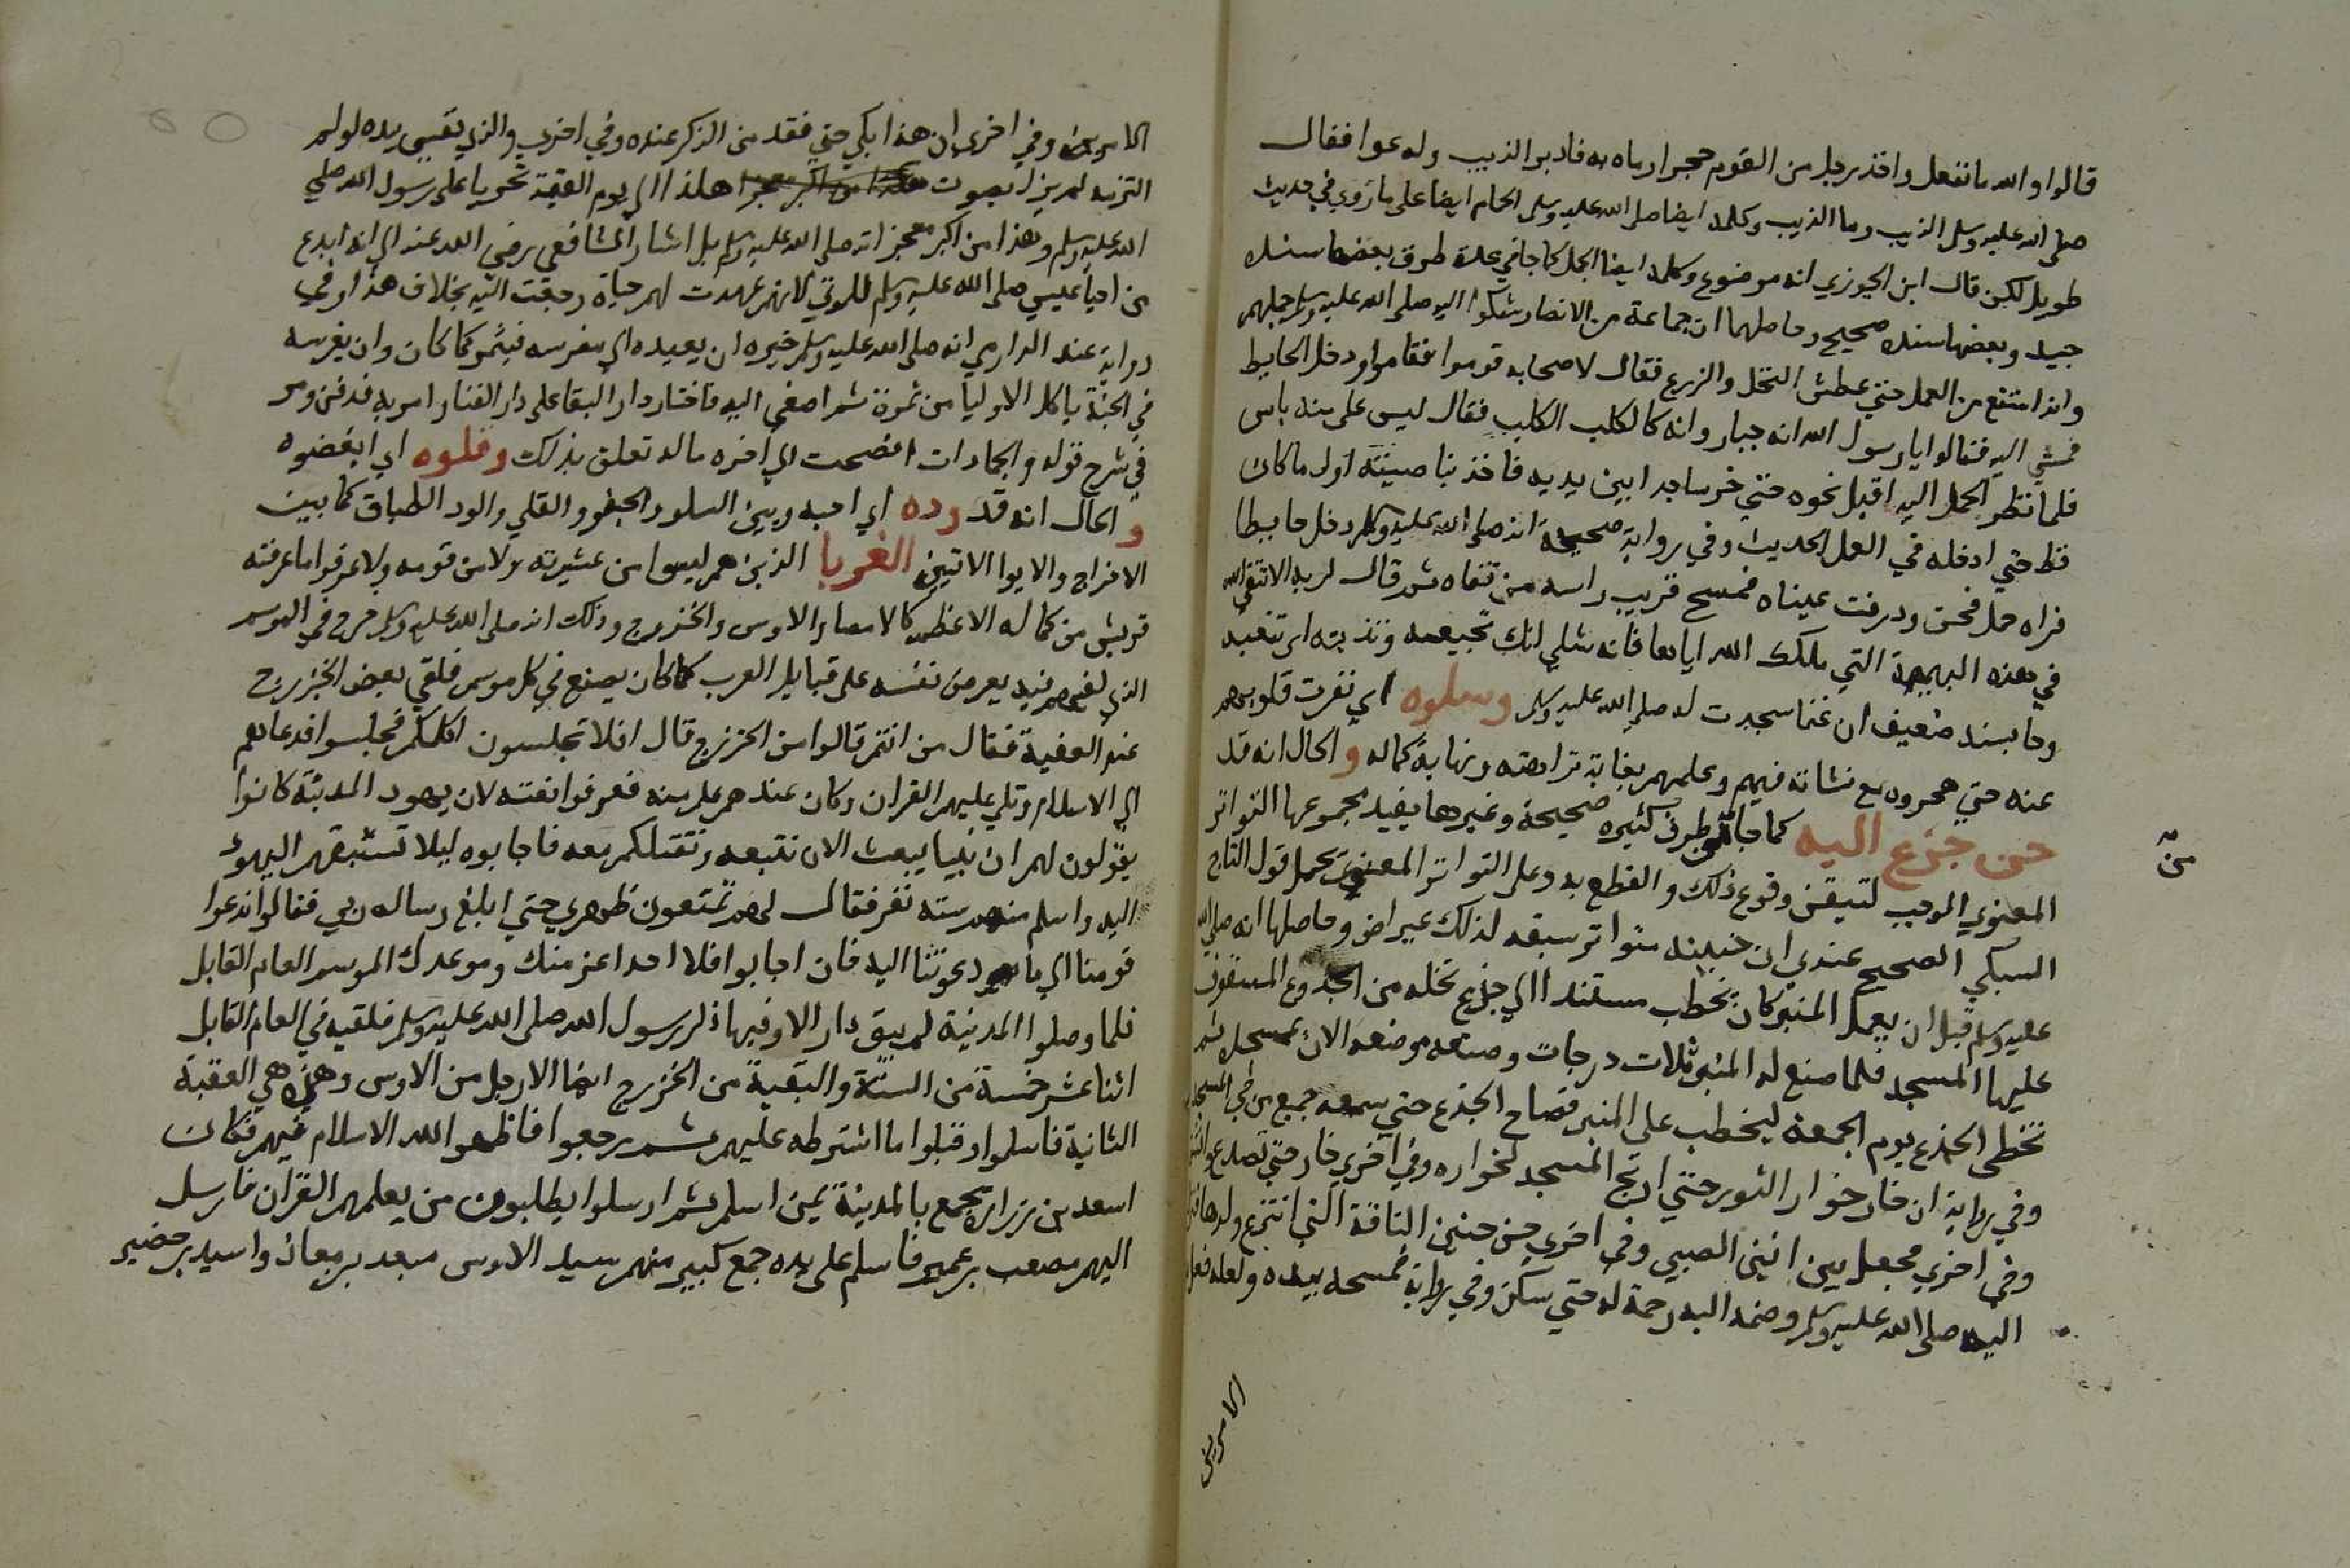 قالوا والله ما نفعل واخذ رجل من القوم حجرا رماه به فادبر الذيب وله عوا فقال
صلى الله عليه وسلم الذيب وما الذيب وكلمه ايضا صلى الله عليه وسلم الحمار ايضا على ما روي في حديث
طويل لكن قال ابن الجوزي انه موضوع وكلمه ايضا الجمل كما جا في عدة طرق بعضها سنده
جيد وبعضها سنده صحيح وحاصلهما ان جماعة من الانصار شكوا اليه صلى الله عليه وسلم جملهم
وانه امتنع من العمل حتي عطش النخل والزرع فقال لاصحابه قوموا فقاموا ودخل الحايط
فمشي اليه فقالوا يا رسول الله انه جبار وانه كالكلب الكلب فقال ليس علي منه باس
فلما نظر الجمل اليه اقبل نحوه حتي خر ساجدا بين يديه فاخذ بناصيته اول ما كان
قط حتي ادخله في العمل الحديث وفي رواية صحيحة انه صلى الله عليه وسلم دخل حايطا
فراه جمل فحن وذرفت عيناه فمسح قريب راسه من قفاه ثم قال لربه الا تتقي الله
في هذه البهيمة التي ملكك الله اياها فانه شكي انك تجيعه وتذيبه اي تتعبه
وجا بسند ضعيف ان غنما سجدت له صلى الله عليه وسلم وسلوه اي نفرت قلوبهم
عنه حتي هجروه مع نشاته فيهم وعلمهم بغاية نزاهته ونهاية كماله و الحال انه قد
حن جزع اليه كما جا من طرق كثيره صحيحة وغيرها يفيد مجموعها التواتر
من
المعنوي الموجب لتيقن وقوع ذلك والقطع به وعلى التواتر المعنوي يحمل قول التاج
السبكي الصحيح عندي ان حنينه متواتر سبقه لذلك عياض وحاصلها انه صلى الله
عليه وسلم قبل ان يعمل المنبر كان يخطب مستندا الي جذع نخله من الجذوع المسقوف
عليها المسجد فلما صنع له المنبر ثلاث درجات وصنعه موضعه الان بمسجده ثم
تخطى الجذع يوم الجمعة ليخطب على المنبر فصاح الجذع حتي سمعه جميع من في المسجد
وفي رواية ان خار خوار الثور حتي ارتج المسجد لخواره وفي اخري خار حتي تصدع وانشق
وفي اخري فجعل يين انين الصبي وفي اخري حن حنين الناقة التي انتزع ولدها فنزل
اليه صلى الله عليه وسلم وضمه اليه رحمة له حتي سكن وفي رواية فمسحه بيده ولعله فعل
الامرين
الامرين وفي اخري ان هذا بكي حتي فقد من الذكر عنده وفي اخري والذي نفسي بيده لو لم
التزمه لم يزل بصوت هكذا الي يوم القيمة تحزنا على رسول الله صلى
الله عليه وسلم وهذا من اكبر معجزاته صلى الله عليه وسلم بل اشار الشافعي رضي الله عنه الي انه ابدع
من احيا عيسي صلى الله عليه وسلم للموتي لانهم عهدت لهم حياة رجعت اليه بخلاف هذا وفي
رواية عند الدارمي انه صلى الله عليه وسلم خيره ان يعيده الي مغرسه فيثمر كما كان وان يغرسه
في الجنة ياكل الاوليا من ثمرة ثم اصغي اليه فاختار دار البقا على دار الفنا وامر به فدفن ومر
في شرح قوله والجمادات افصحت الي اخره ما له تعلق بذلك وقلوه اي ابغضوه
و الحال انه قد وده اي احبه وبين السلو والجفو والقلي والود الطباق كما بين
الاخراج والايوا الاتيين الغربا الذين هم ليسوا من عشيرته ولا من قومه ولا عرفوا ما عرفته
قريش من كماله الاعظم كالانصار الاوس والخزرج وذلك انه صلى الله عليه وسلم خرج في الموسم
الذي لقيهم فيه يعرض نفسه على قبايل العرب كما كان يصنع في كل موسم فلقي بعض الخزرج
عند العقبة فقال من انتم قالوا من الخزرج قال افلا تجلسون اكلمكم فجلسوا فدعاهم
الي الاسلام وتلي عليهم القران وكان عندهم علم منه فعرفوا نعته لان يهود المدينة كانوا
يقولون لهم ان نبيا يبعث الان نتبعه ونقتلكم معه فاجابوه ليلا تسبقهم اليهود
اليه واسلم منهم سته نفر فقال لهم تمنعون ظهري حتي ابلغ رساله ربي فقالوا ندعوا
قومنا الي ما دعوتنا اليه فان اجابوا فلا احد اعز منك وموعدك الموسم العام القابل
فلما وصلوا المدينة لم يبق دار الا وفيها ذكر رسول الله صلى الله عليه وسلم فلقيه في العام القابل
اثنا عشر خمسة من الستة والبقية من الخزرج ايضا الا رجل من الاوس وهذه هي العقبة
الثانية فاسلموا وقبلوا ما اشترطه عليهم ثم رجعوا فاظهر الله الاسلام فيهم فكان
اسعد بن زرارة يجمع بالمدينة بمن اسلم ثم ارسلوا يطلبون من يعلمهم القران فارسل
اليهم مصعب بن عمير فاسلم على يده جمع كبير منهم سيد الاوس سعد بن معاذ واسيد بن حضير